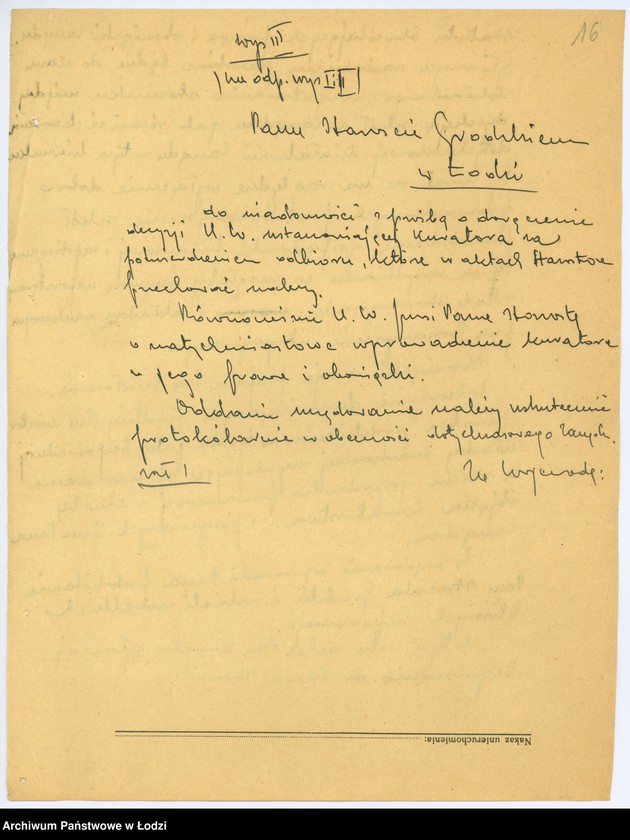 16
wyp III
(na odp. wyp I i II)
Panu Staroście Grodzkiemu
w Łodzi
do wiadomości z prośbą o doręczenie
decyzji U.W. ustanawiającej kuratora za
potwierdzeniem odbioru, które w aktach Starostwa
przechować należy.
Równocześnie U.W. prosi Pana Starostę
o natychmiastowe wprowadzenie kuratora
w jego prawa i obowiązki.
Oddanie urzędowania należy uskutecznić
protokólarnie w obecności dotychczasowego Zarządu.
zał 1
Za Wojewodę:
Nakaz unieruchomienia:
Archiwum Państwowe w Łodzi